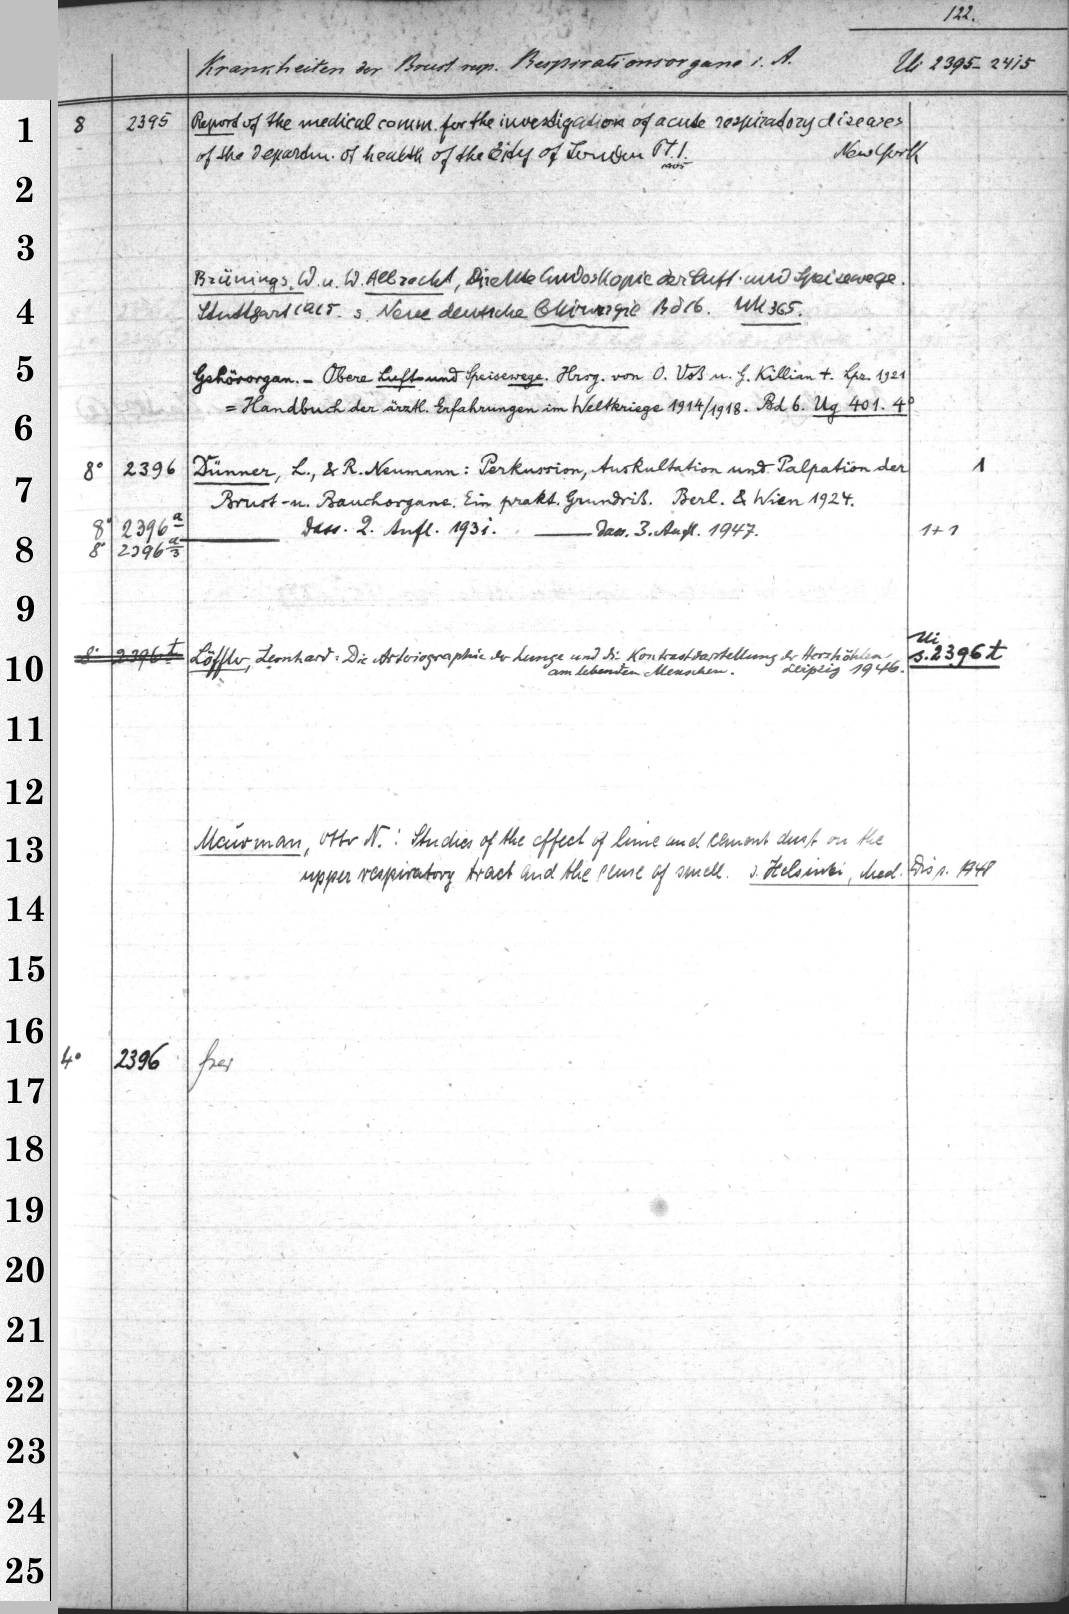 122.
Krankheiten der Brust resp. Respirationsorgane i. A. Ui 2395-2415
1
8 2395 Report of the medical comm. for the investigation of acute respiratory diseases
of the departm. of health of the City of London Pt. 1. New York
1905
2
3
Brünings, W. u. W. Albrecht, Direkte Endoskopie der Luft- und Speisewege.
4
Stuttgart 1915. s. Neue deutsche Chirurgie Bd 16. Uk 365.
5
Gehörorgan. - Obere Luft- und Speisewege. Hrsg. von O. Voß u. G. Killian †. Lpz. 1921
= Handbuch der ärztl. Erfahrungen im Weltkriege 1914/1918. Bd 6. Ug 401. 4°
6
8° 2396 Dünner, L., & R. Neumann: Perkussion, Auskultation und Palpation der 1
7
Brust- u. Bauchorgane. Ein prakt. Grundriß. Berl. & Wien 1924.
8° 2396 a Dass. 2. Aufl. 1931. Dass. 3. Aufl. 1947. 1+1
8
8° 2396 a/3
9
Ui
8° 2396 t Löffler, Leonhard: Die Arteriographie der Lunge und die Kontrastdarstellung der Herzhöhlen s. 2396 t
10
am lebenden Menschen. Leipzig 1946.
11
12
13
Maurman, Otto N.: Studies of the effect of lime and cement dust on the
upper respiratory tract and the sense of smell. s. Helsinki, Med. Diss. 1948
14
15
16
4° 2396 frei
17
18
19
20
21
22
23
24
25